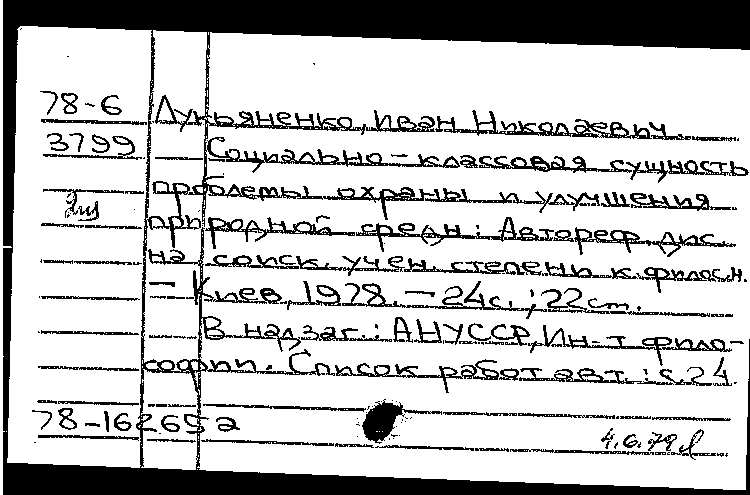 78-6 Лукьяненко, Иван Николаевич.
3799 Социально-классовая сущность
проблемы охраны и улучшения
природной среды: Автореф. дис.
на соиск. учен. степени к. филос. н.
- Киев, 1978. - 24с.; 22 см.
В надзаг.: АН УССР, Ин-т фило-
софии. Список работ авт.: с. 24
78-16265 а
4.6.79